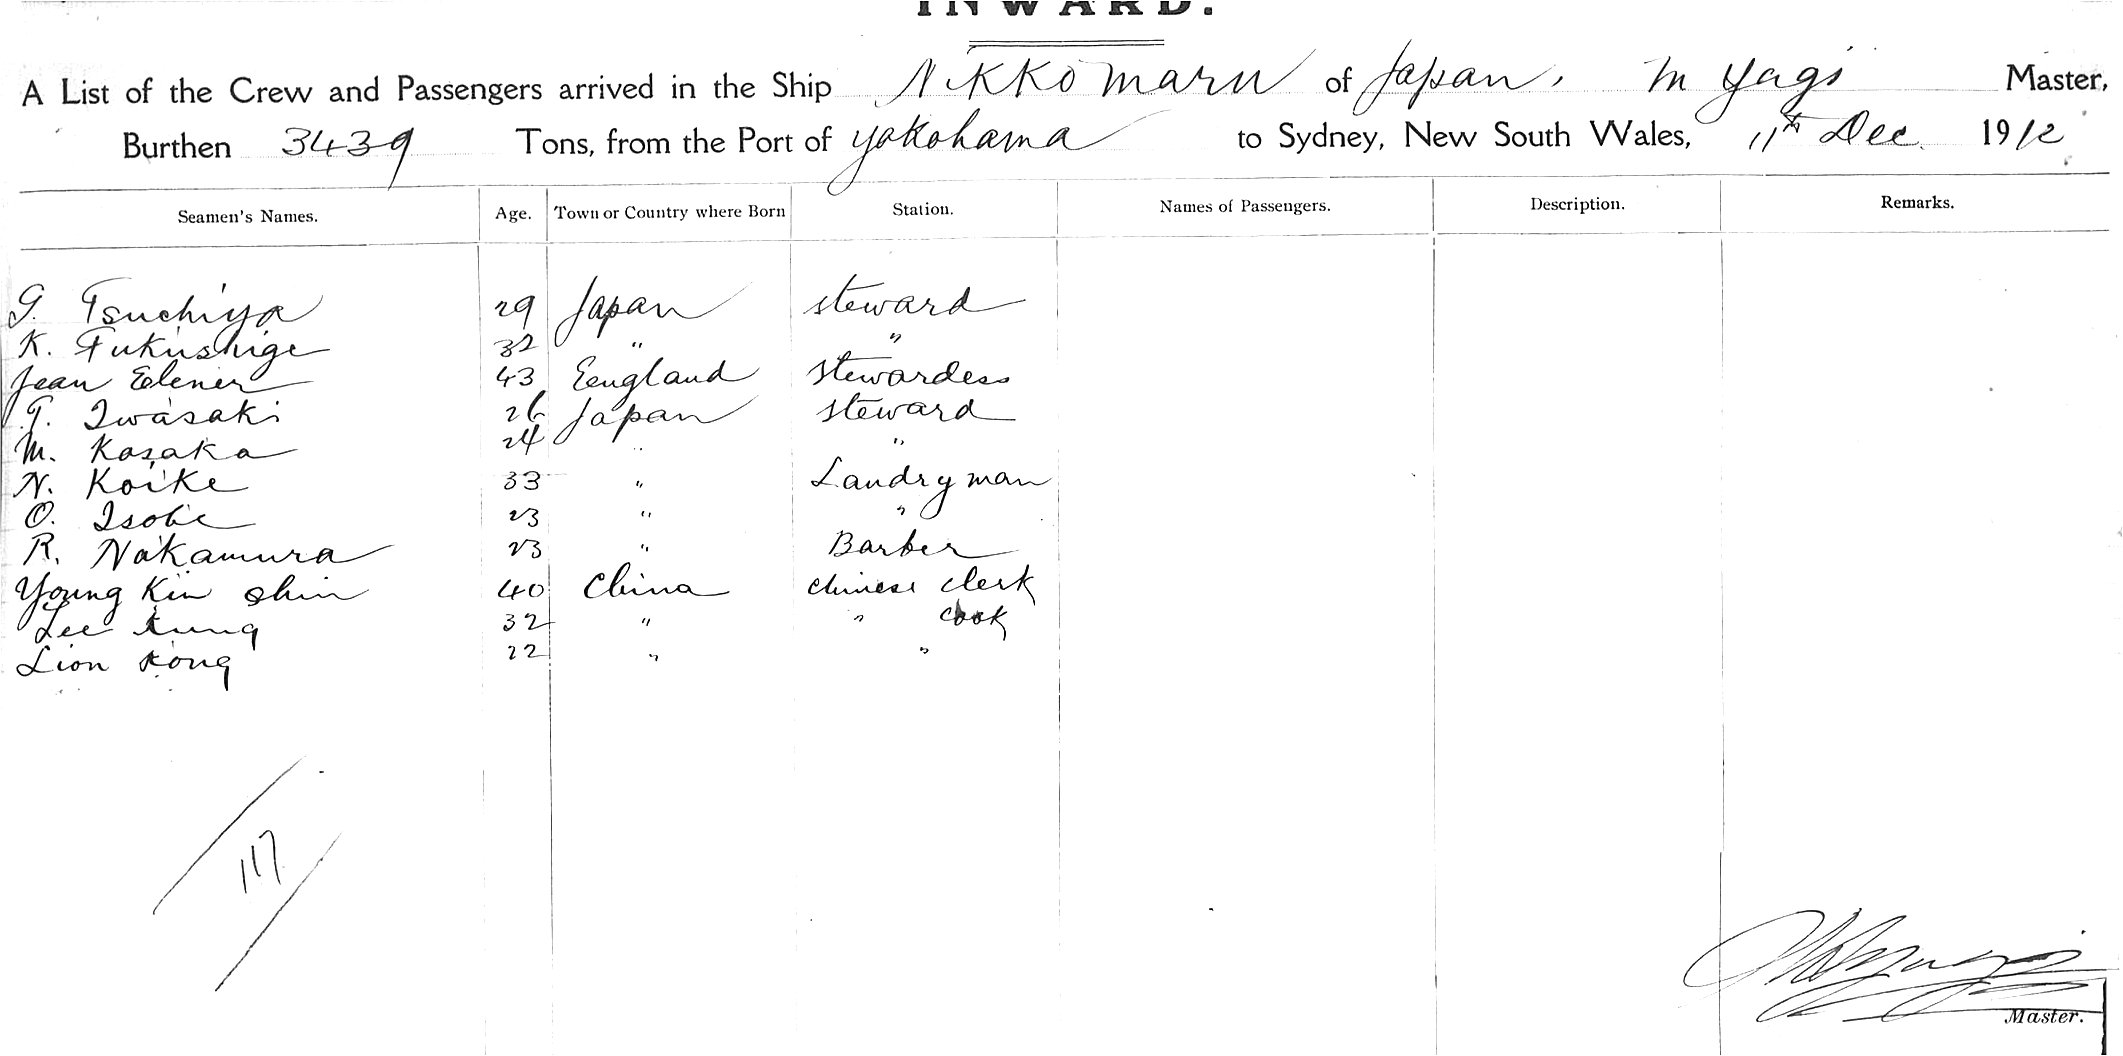 INWARD.
A List of the Crew and Passengers arrived in the Ship Nikko Maru of Japan, M Yagi Master,
Burthen 3439 Tons, from the Port of Yokohama to Sydney, New South Wales, 11th Dec. 1912
Seamen's Names. Age. Town or Country where Born Station. Names of Passengers. Description. Remarks.
G. Tsuchiya 29 Japan steward
K. Fukushige 32 " "
Jean Edener 43 Eengland stewardess
T. Iwasaki 26 Japan steward
M. Kosaka 24 " "
N. Koike 33 " Landryman
O. Isobe 23 " "
R. Nakamura 23 " Barber
Young Kin Shin 40 China chinese clerk
Lee Kung 32 " " cook
Lion Kong 22 " "
117
Master.